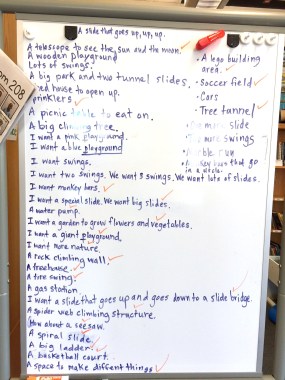 A slide that goes up, up, up.
A telescope to see the sun and the moon.
A wooden playground
Lots of swings.
A big park and two tunnel slides.
red house to open up.
prinklers
A picnic table to eat on.
A big climbing tree.
I want a pink playground
I want a blue playground
I want swings.
I want two swings. We want 3 swings. We want lots of slides.
I want monkey bars.
I want a special slide. We want big slides.
A water pump.
I want a garden to grow flowers and vegetables.
I want a giant playground.
I want more nature.
A rock climbing wall.
A treehouse.
A tire swing.
A gas station.
I want a slide that goes up and goes down to a slide bridge.
A spider web climbing structure.
How about a seesaw.
A spiral slide.
A big ladder.
A basketball court.
A space to make different things
• A lego building
area.
• Soccer field
• Cars
• Tree tunnel
slide
more swings
run
that go
in a circle.
om 208